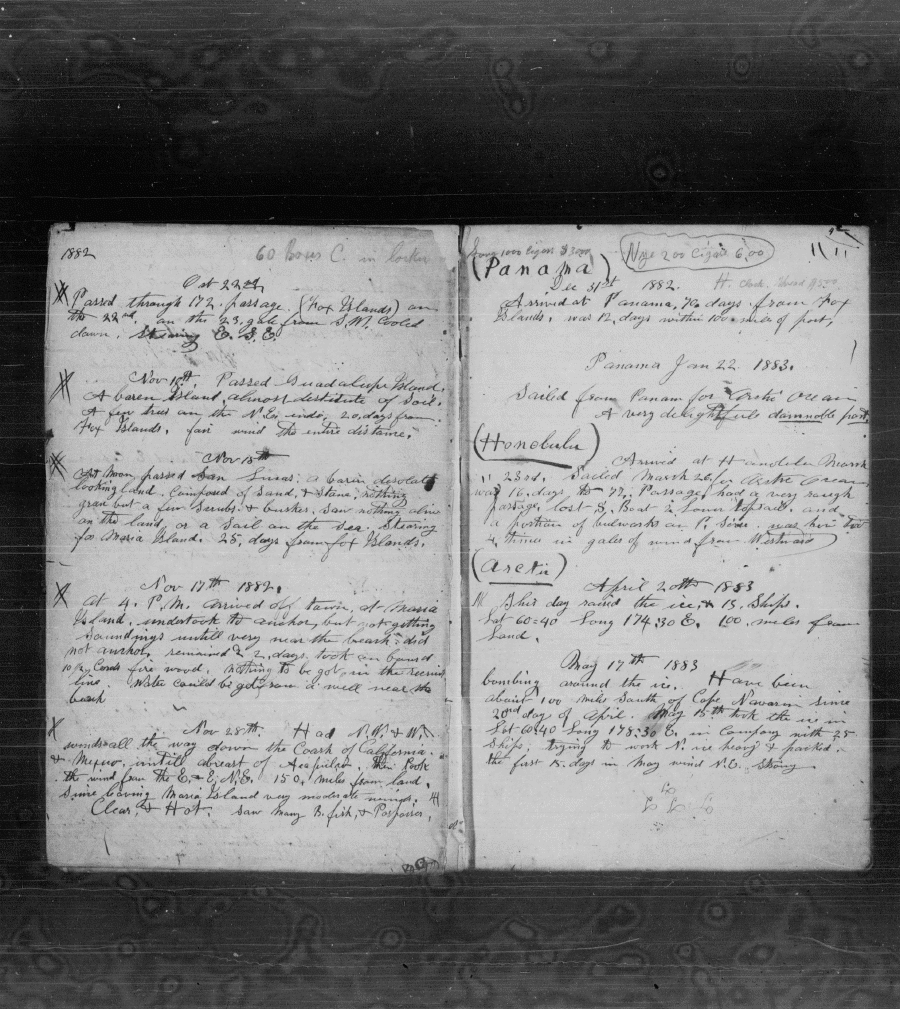 1882
60 Boxes C. in locker
Oct 22nd
Passed through 172. passage. (Fox Islands) on
the 22nd. on the 23, gale from S.W. Cooled
down. Stearing E. S. E.
Nov 10th. Passed Guadalupe Island.
A baren Island, almost destitute of Soil.
A few trees on the N.E. ends, 20, days from
Fox Islands. fair wind the entire distance.
Nov 13th
At Noon passed San Lucas: a baren desolate
looking land. Composed of Sand, & Stone, nothing
grew but a few Scrubs, & bushes. Saw nothing alive
on the land, or a Sail on the Sea. Stearing
for Maria Island. 23, days from fox Islands.
Nov 17th 1882.
At 4. P.M. arrived off town, at Maria
Island, undertook to anchor, but not getting
Soundings untill very near the beach: did
not anchor, remained 2, days. took on board
10 Cords fire wood. nothing to be got, in the
line. Water could be got from a well near the
beach
Nov 28th. Had N.W. & W.
winds all the way down the Coast of California.
& Mexico. untill abreast of Acapulco. then Took
the wind from the E. E.N.E. 150, miles from land,
Since leaving Maria Island very moderate winds.
Clear, & Hot. Saw many B.fish, & Porpoises,
1000 Cigars
Nye 200 Cigars 6.00
(Panama)
Dec 31st 1882.
Arrived at Panama, 70, days from Fox
Islands. was 12, days within 100 miles of port,
Panama Jan 22 1883.
Sailed from Panam for Arctic Ocean
A very delightfull damnoble port
(Honolulu)
Arrived at Honolulu March
23rd. Sailed March 26, for Arctic Ocean,
was 16, days to 77, Passage had a very rough
passage, lost S. Boat 2 Lower topsail. and
a portion of bulworks on P. Side.
4, times in gales of wind from Westward
(Arctic)
April 20th 1883
This day raised the ice, & 13. Ships.
Lat 60=40 Long 174,30 E. 100 miles from
land.
May 17th 1883
Have been
bombing around the ice.
about 100 miles South of Cape Navarin Since
20nd day of April. May 15th took the ice in
Lat 60=40 Long 178=30 E. in Company with 25
Ships, trying to work N. ice heavy & packed.
the first 15. days in May wind N.E. Strong